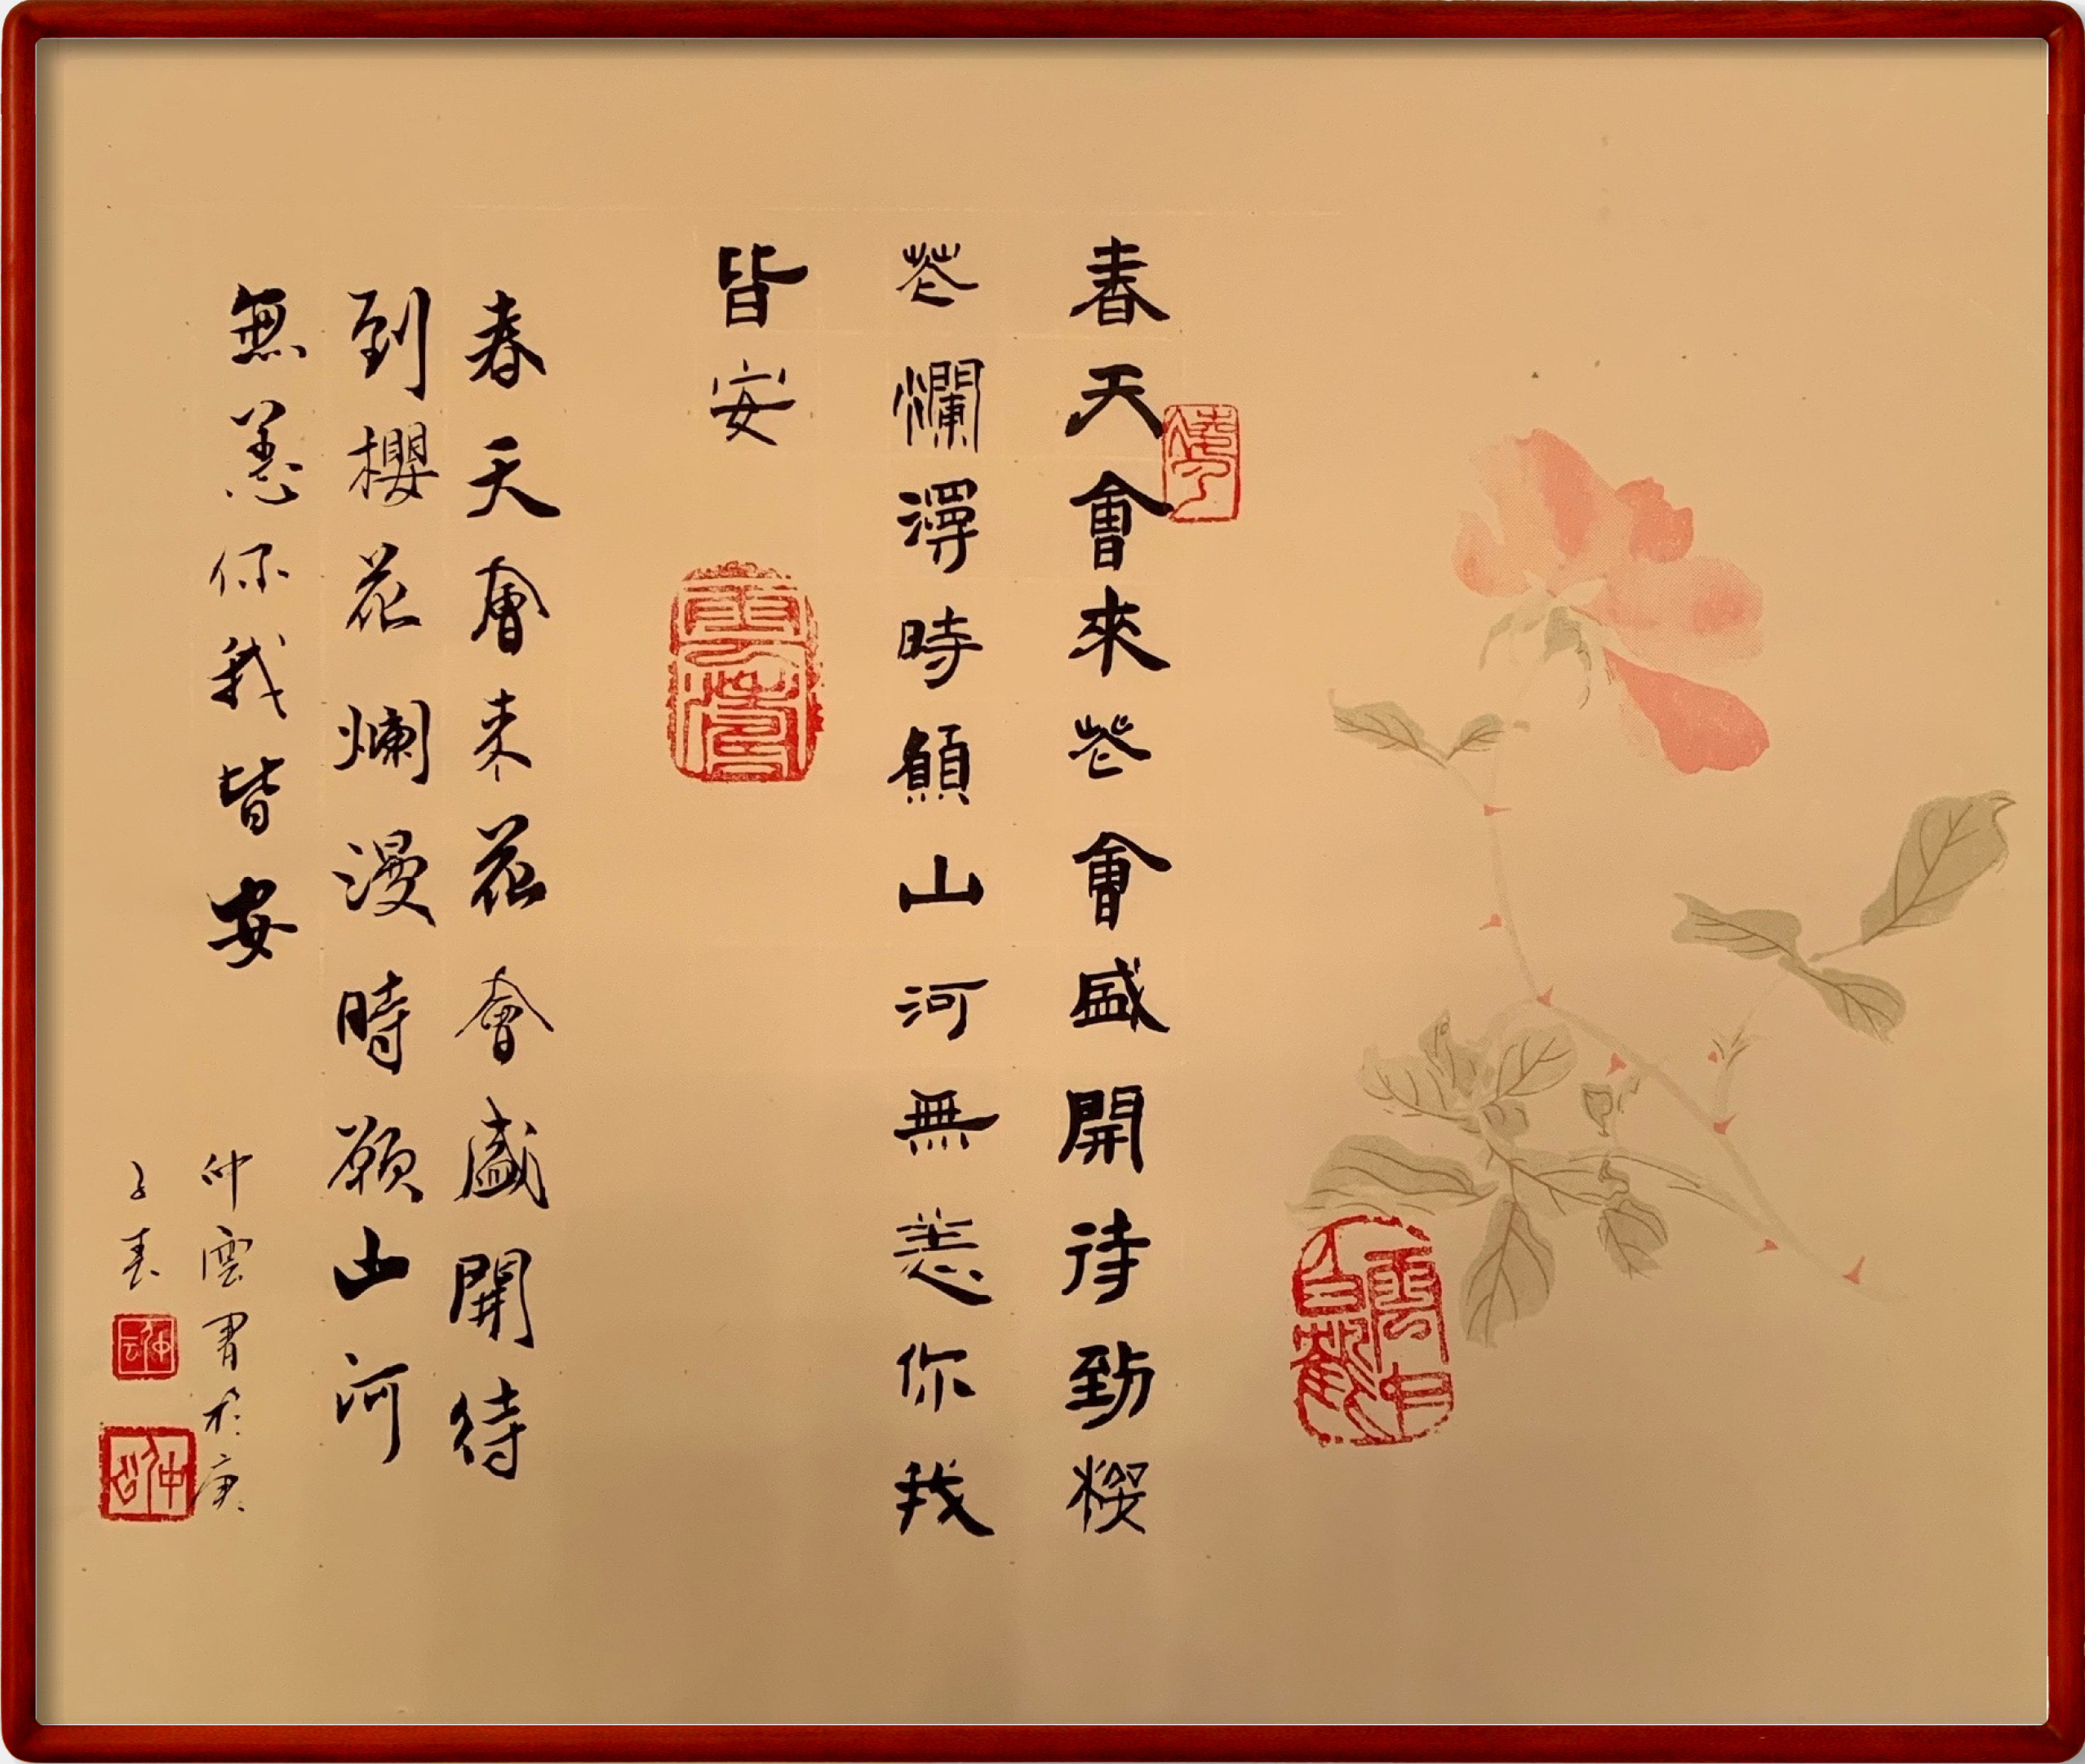 春天會來花會盛開待到櫻
花爛漫時願山河無恙你我
皆安
春天會來花會盛開待
到櫻花爛漫時願山河
無恙你我皆安
仲雲書於庚
子春